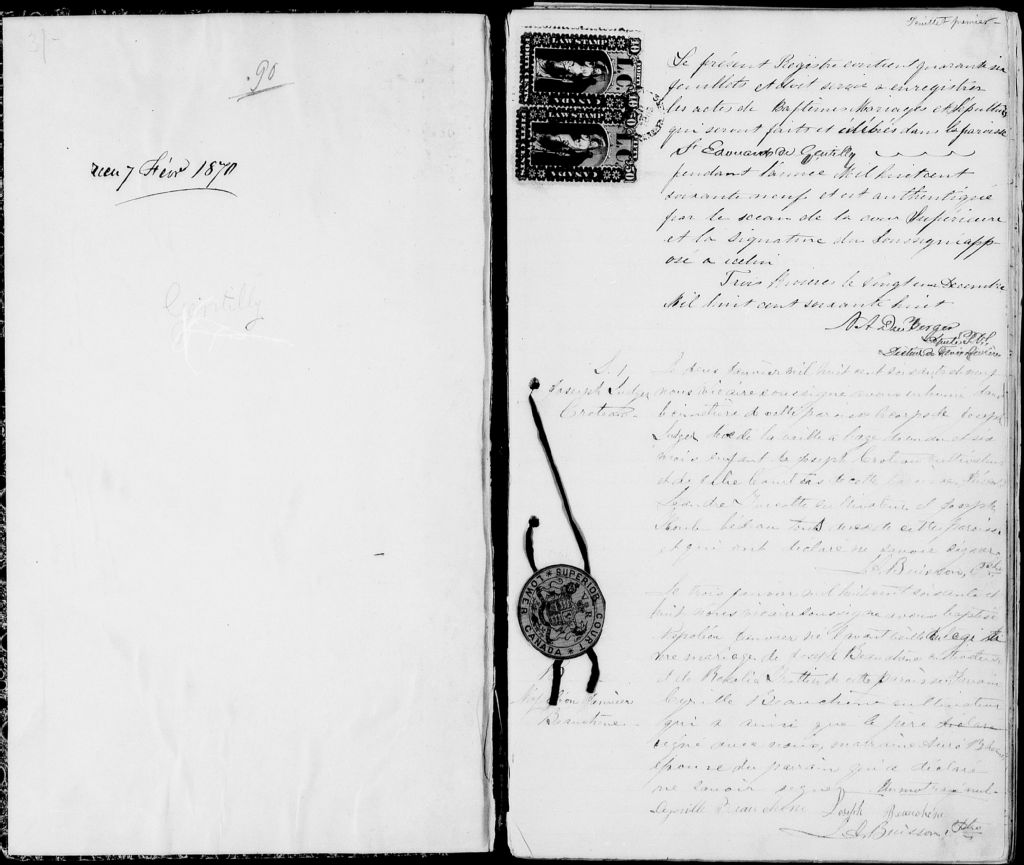 .90
Gentilly
Feuillet premier
LAW STAMP
L.C.
LAW STAMP
L.C.
Le présent Registre contient quarante six
feuillets et doit servir à enregistrer
les actes de Baptêmes Mariages et Sépultures
qui seront faits et célébrés dans la paroisse
St Edouard de Gentilly
pendant l'année Mil huit cent
soixante neuf et est authentiqué
par le sceau de la cour Supérieure
et la signature du Soussigné app-
osé à icelui
Trois Rivières le vingt une Décembre
Mil huit cent soixante huit
S. 1
Joseph Ludger
Croteau
Le deux Janvier mil huit cent soixante et neuf
nous vicaire soussigné avons inhumé dans
le cimetière de cette paroisse le corps de Joseph
Ludger décédé la veille à l'age de un an et six
mois enfant de Joseph Croteau cultivateur
et de
Léandre cultivateur et Joseph
tous deux de cette paroisse
et qui ont déclaré ne savoir signer
Buisson, Ptre
SUPERIOR COURT
LOWER CANADA
V R
Napoléon Janvier
Beauchène
Le trois janvier mil huit cent soixante et
huit nous vicaire soussigné avons baptisé
Napoléon Janvier né l'avant veille du légiti
me mariage de Joseph Beauchène cultivateur
et de de cette paroisse Parrain
Cyrille Beauchène cultivateur
qui a ainsi que le père
signé avec nous, marraine
épouse du parrain qui a déclaré
ne savoir signer Un mot rayé nul
Cyrille Beauchène Joseph Beauchène
Buisson, Ptre